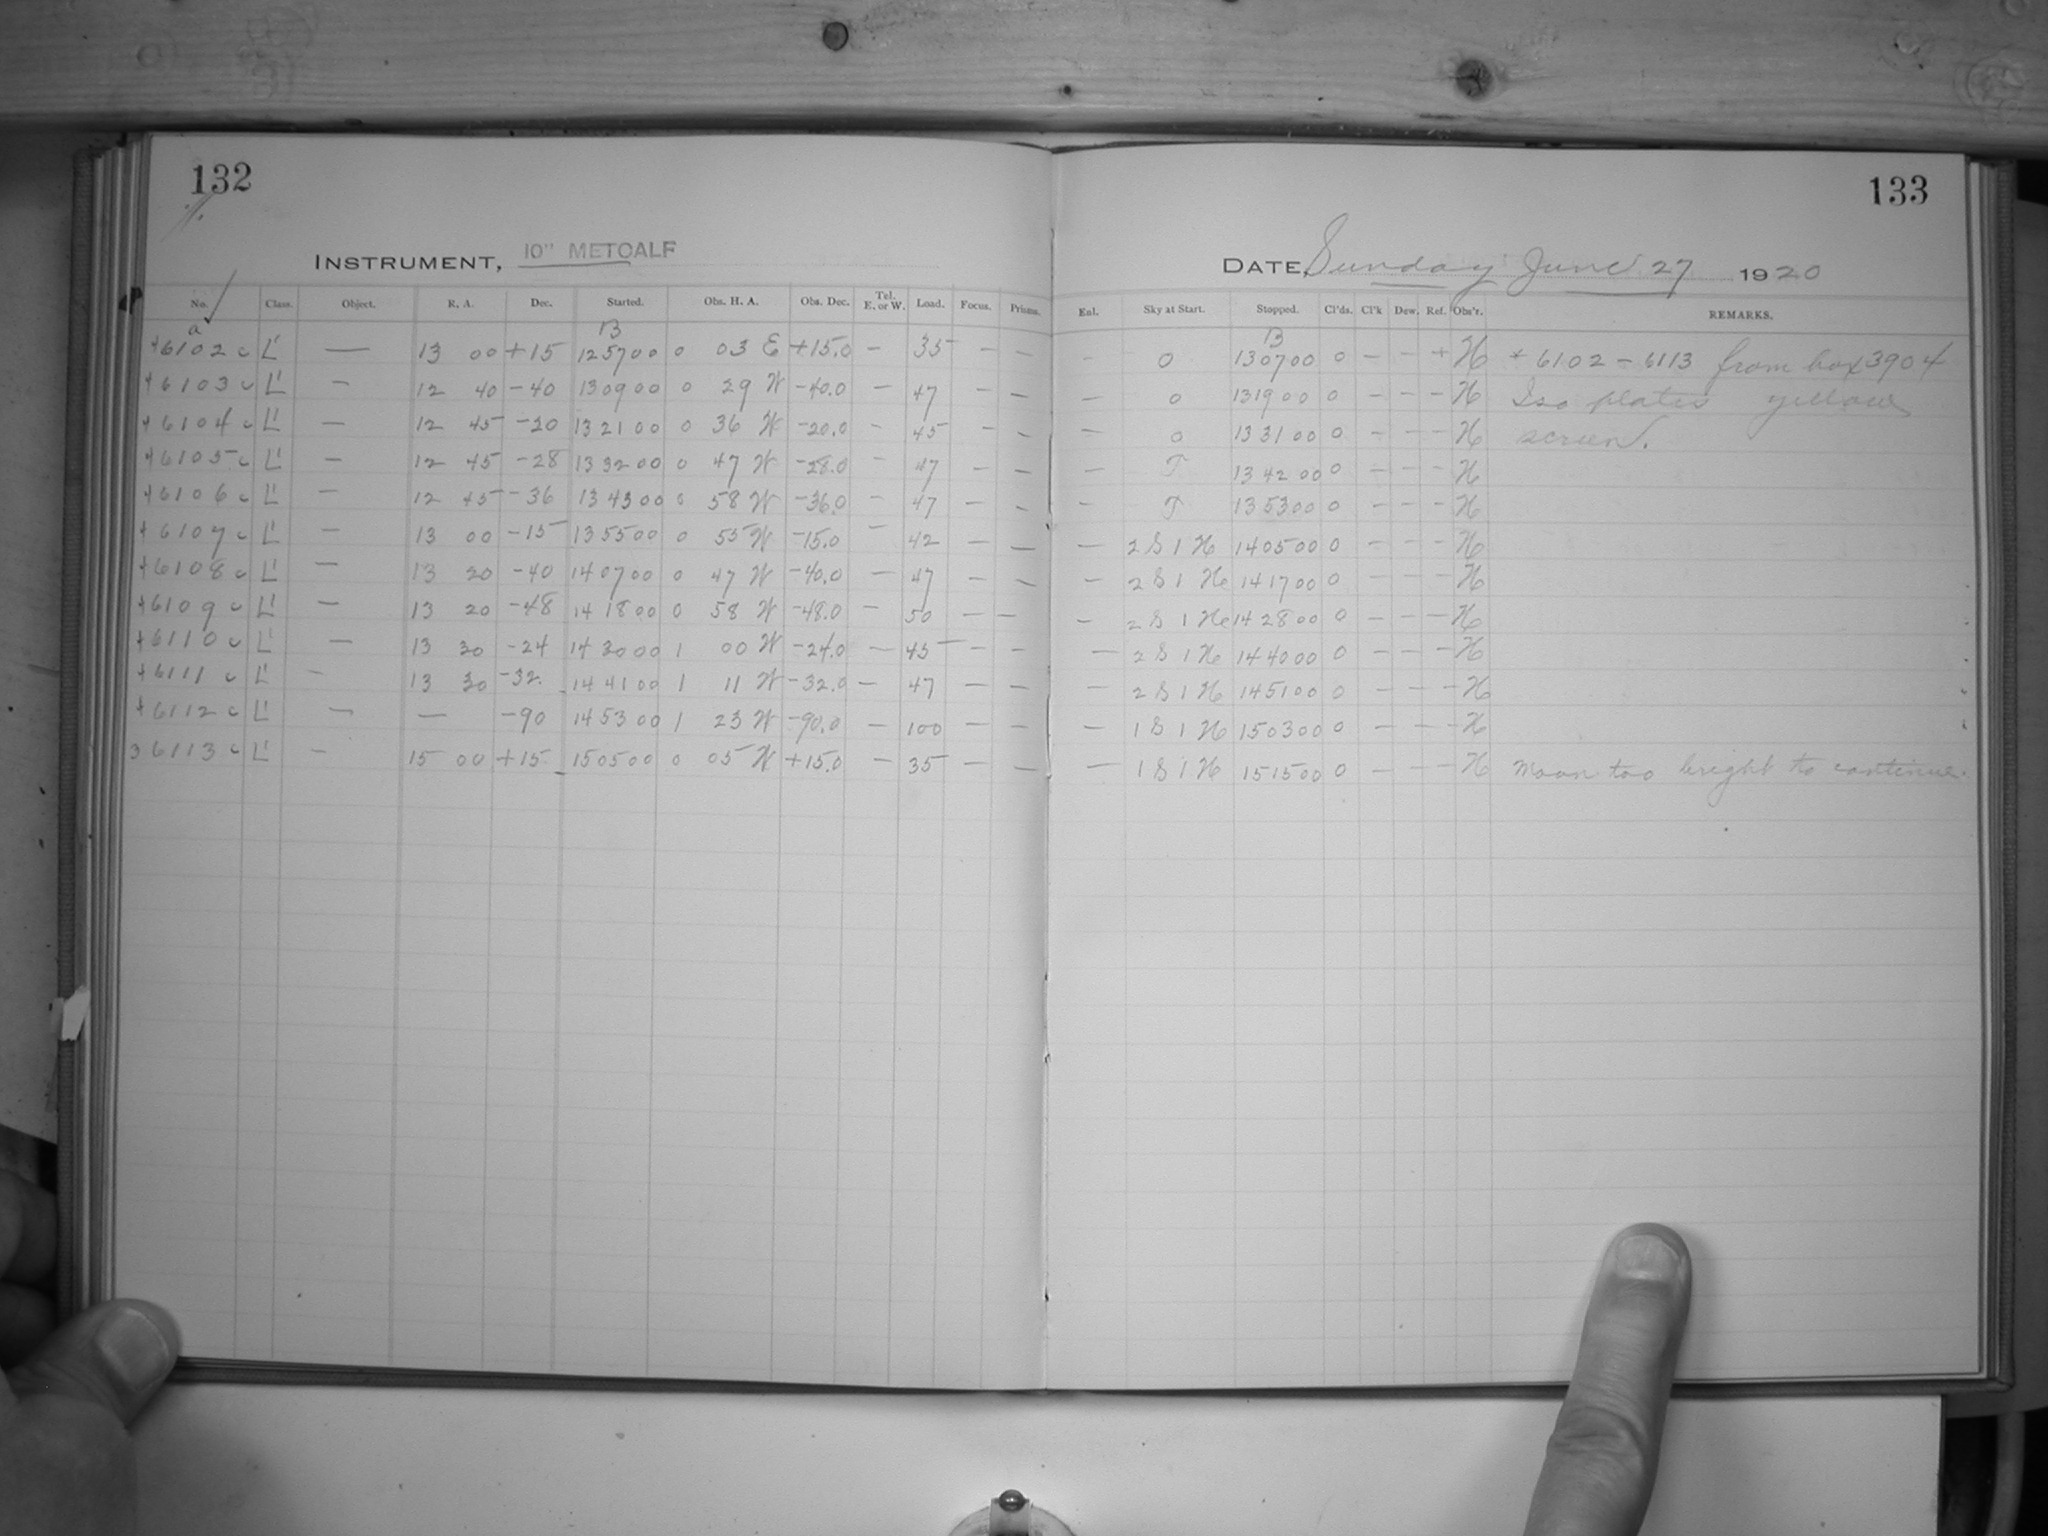 132
133
INSTRUMENT, 10" METCALF
DATE, Sunday June 27 1920
No. Class. Object. R. A. Dec. Started. Obs. H. A. Obs. Dec. Tel. E. or W. Load. Focus. Prisms. Enl. Sky at Start. Stopped. Cl'ds. Cl'k Dew. Ref. Obs'r. REMARKS.
a B B
+6102 c L' — 13 00 +15 125700 0 03 E +15.0 — 35 — — — 0 130700 0 — — + H * 6102 - 6113 from box 3904
+6103 c L' — 12 40 -40 130900 0 29 W -40.0 — 47 — — — 0 131900 0 — — — H Iso plates yellow
+6104 c L' — 12 45 -20 132100 0 36 W -20.0 — 45 — — — 0 133100 0 — — — H screen.
+6105 c L' — 12 45 -28 133200 0 47 W -28.0 — 47 — — — T 134200 0 — — — H
+6106 c L' — 12 45 -36 134300 0 58 W -36.0 — 47 — — — T 135300 0 — — — H
+6107 c L' — 13 00 -15 135500 0 55 W -15.0 — 42 — — — 2 S 1 H 140500 0 — — — H
+6108 c L' — 13 20 -40 140700 0 47 W -40.0 — 47 — — — 2 S 1 H 141700 0 — — — H
+6109 c L' — 13 20 -48 141800 0 58 W -48.0 — 50 — — — 2 S 1 H 142800 0 — — — H
+6110 c L' — 13 30 -24 143000 1 00 W -24.0 — 45 — — — 2 S 1 H 144000 0 — — — H
+6111 c L' — 13 30 -32. 144100 1 11 W -32.0 — 47 — — — 2 S 1 H 145100 0 — — — H
+6112 c L' — — -90 145300 1 23 W -90.0 — 100 — — — 1 S 1 H 150300 0 — — — H
36113 c L' — 15 00 +15 150500 0 05 W +15.0 — 35 — — — 1 S 1 H 151500 0 — — — H Moon too bright to continue.